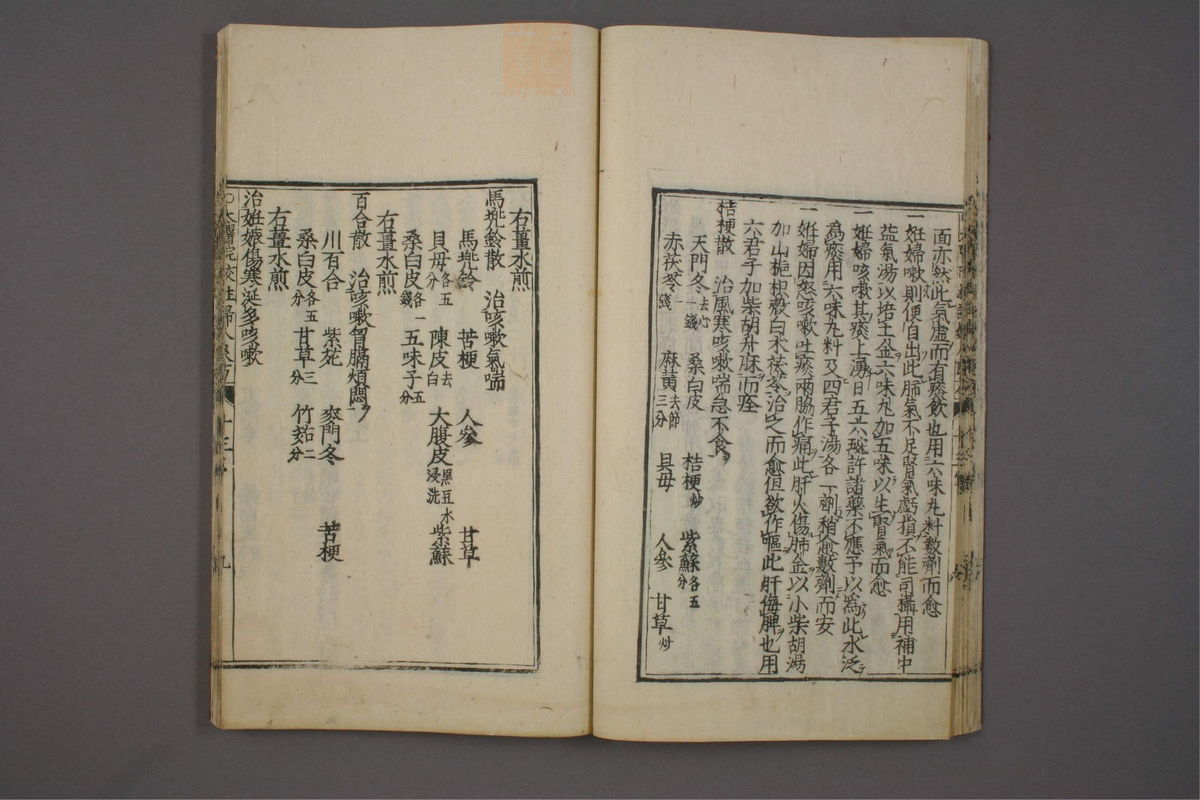 面亦然此氣虛而有痰飲也用六味丸料數劑而愈
一 妊婦嗽則便自出此肺氣不足腎氣虧損不能司攝用補中
益氣湯以培土金六味丸加五味以生腎氣而愈
一 妊婦咳嗽其痰上湧日五六碗許諸藥不應予以爲此水泛
爲痰用六味丸料及四君子湯各一劑稍愈數劑而安
一 妊婦因怒咳嗽吐痰兩脇作痛此肝火傷肺金以小柴胡湯
加山梔枳殻白朮茯苓治之而愈但欲作嘔此肝侮脾也用
六君子加柴胡升麻而痊
桔梗散 治風寒咳嗽喘急不食
天門冬去心一錢 桑白皮 桔梗炒 紫蘇各五分
赤茯苓一錢 麻黃去節三分 貝母 人參 甘草炒
右薑水煎
馬兠鈴散 治咳嗽氣喘
馬兠鈴 苦梗 人參 甘草
貝母各五分 陳皮去白 大腹皮黑豆水浸洗 紫蘇
桑白皮各一錢 五味子五分
右薑水煎
百合散 治咳嗽胷膈煩悶
川百合 紫菀 麥門冬 苦梗
桑白皮各五分 甘草三分 竹茹二分
右薑水煎
治妊娠傷寒涎多咳嗽
○太醫院校註婦人良方 十三
九